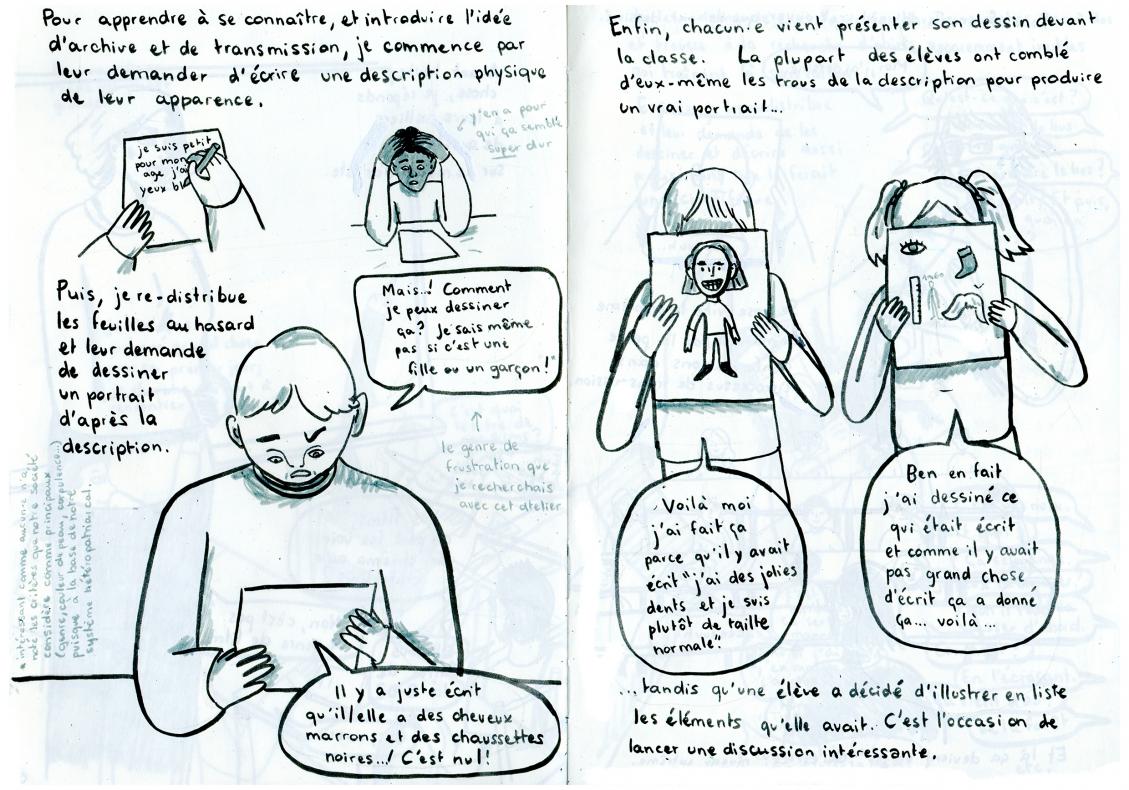 Pour apprendre à se connaître, et introduire l'idée
d'archive et de transmission, je commence par
leur demander d'écrire une description physique
de leur apparence.
je suis petit
pour mon
age j'a
yeux bl
y'en a pour
qui ça semble
super dur
Puis, je re-distribue
les feuilles au hasard
et leur demande
de dessiner
un portrait
d'après la
description.
Mais..! Comment
je peux dessiner
ça? Je sais même
pas si c'est une
fille ou un garçon!*
le genre de
frustration que
je recherchais
avec cet atelier
* intéressant comme aucun·e n'a
noté les critères que notre société
considère comme principaux
(genre, couleur de peau, corpulence...)
puisque à la base de notre
système hétéropatriarcal.
Il y a juste écrit
qu'il/elle a des cheveux
marrons et des chaussettes
noires..! C'est nul!
Enfin, chacun·e vient présenter son dessin devant
la classe. La plupart des élèves ont comblé
d'eux-même les trous de la description pour produire
un vrai portrait...
Voilà moi
j'ai fait ça
parce qu'il y avait
écrit "j'ai des jolies
dents et je suis
plutôt de taille
normale".
Ben en fait
j'ai dessiné ce
qui était écrit
et comme il y avait
pas grand chose
d'écrit ça a donné
ça... voilà...
...tandis qu'une élève a décidé d'illustrer en liste
les éléments qu'elle avait. C'est l'occasion de
lancer une discussion intéressante.